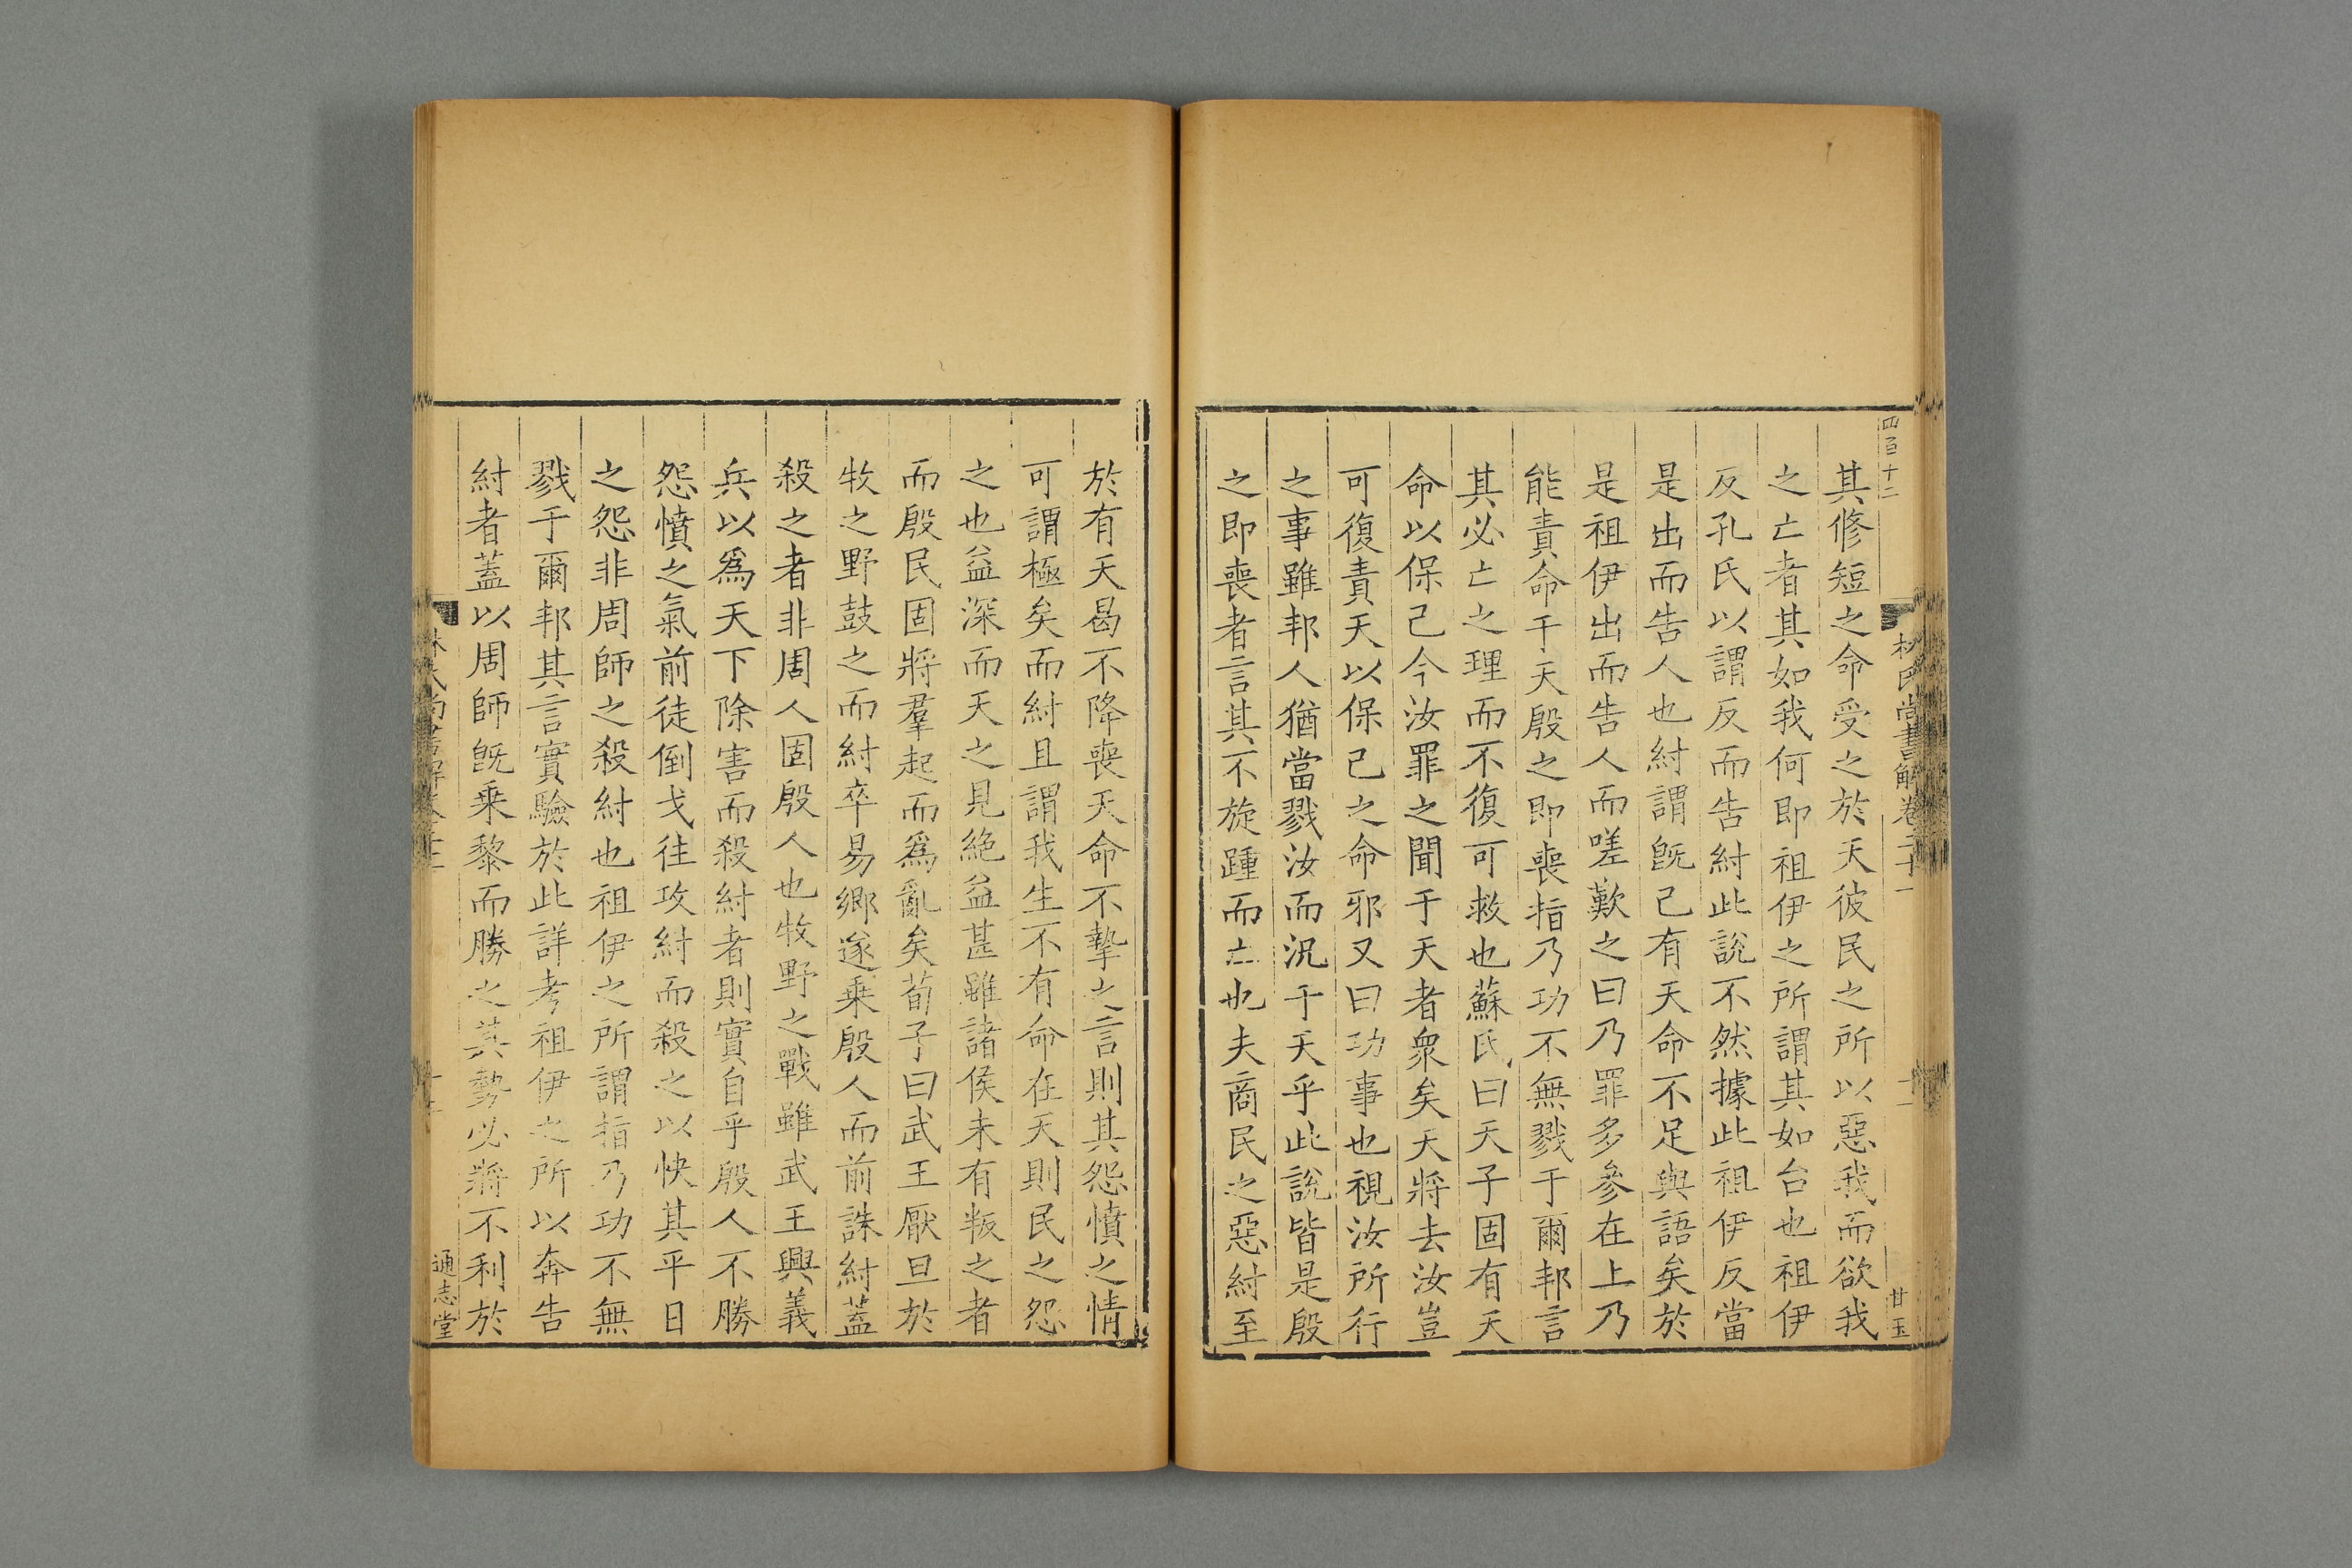 四百十二
林氏尚書解卷二十一
十一
甘玉
其修短之命受之於天彼民之所以惡我而欲我
之亡者其如我何即祖伊之所謂其如台也祖伊
反孔氏以謂反而告紂此說不然據此祖伊反當
是出而告人也紂謂既已有天命不足與語矣於
是祖伊出而告人而嗟歎之曰乃罪多參在上乃
能責命于天殷之即喪指乃功不無戮于爾邦言
其必亡之理而不復可救也蘇氏曰天子固有天
命以保己今汝罪之聞于天者衆矣天將去汝豈
可復責天以保己之命邪又曰功事也視汝所行
之事雖邦人猶當戮汝而況于天乎此說皆是殷
之即喪者言其不旋踵而亡也夫商民之惡紂至
於有天曷不降喪天命不摯之言則其怨憤之情
可謂極矣而紂且謂我生不有命在天則民之怨
之也益深而天之見絶益甚雖諸侯未有叛之者
而殷民固將羣起而爲亂矣荀子曰武王厭旦於
牧之野鼓之而紂卒易鄉遂乗殷人而前誅紂蓋
殺之者非周人固殷人也牧野之戰雖武王興義
兵以爲天下除害而殺紂者則實自乎殷人不勝
怨憤之氣前徒倒戈往攻紂而殺之以快其平日
之怨非周師之殺紂也祖伊之所謂指乃功不無
戮于爾邦其言實驗於此詳考祖伊之所以奔告
紂者蓋以周師既乗黎而勝之其勢必將不利於
通志堂